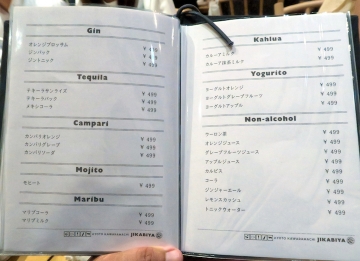 Gin
オレンジブロッサム ¥ 499
ジンバック ¥ 499
ジントニック ¥ 499
Tequila
テキーラサンライズ ¥ 499
テキーラバック ¥ 499
メキシコーラ ¥ 499
Campari
カンパリオレンジ ¥ 499
カンパリグレープ ¥ 499
カンパリソーダ ¥ 499
Mojito
モヒート ¥ 499
Maribu
マリブコーラ ¥ 499
マリブミルク ¥ 499
JIKABIYA
Kahlua
カルーアミルク ¥ 499
カルーア抹茶ミルク ¥ 499
Yogurito
ヨーグルトオレンジ ¥ 499
ヨーグルトグレープフルーツ ¥ 499
ヨーグルトアップル ¥ 499
Non-alcohol
ウーロン茶 ¥ 499
オレンジジュース ¥ 499
グレープフルーツジュース ¥ 499
アップルジュース ¥ 499
カルピス ¥ 499
コーラ ¥ 499
ジンジャーエール ¥ 499
レモンスカッシュ ¥ 499
トニックウォーター ¥ 499
JIKABIYA